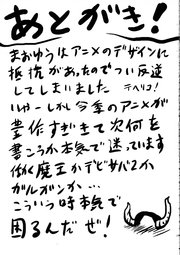 あとがき!
まおゆうはアニメのデザインに
抵抗があったのでつい反逆
してしまいました テヘペロ!
いやーしかし今季のアニメが
豊作すぎて次何を
書こうか本気で迷っています
働く魔王かデビサバ2か
ガルガンか…
こういう時本気で
困るんだぜ!